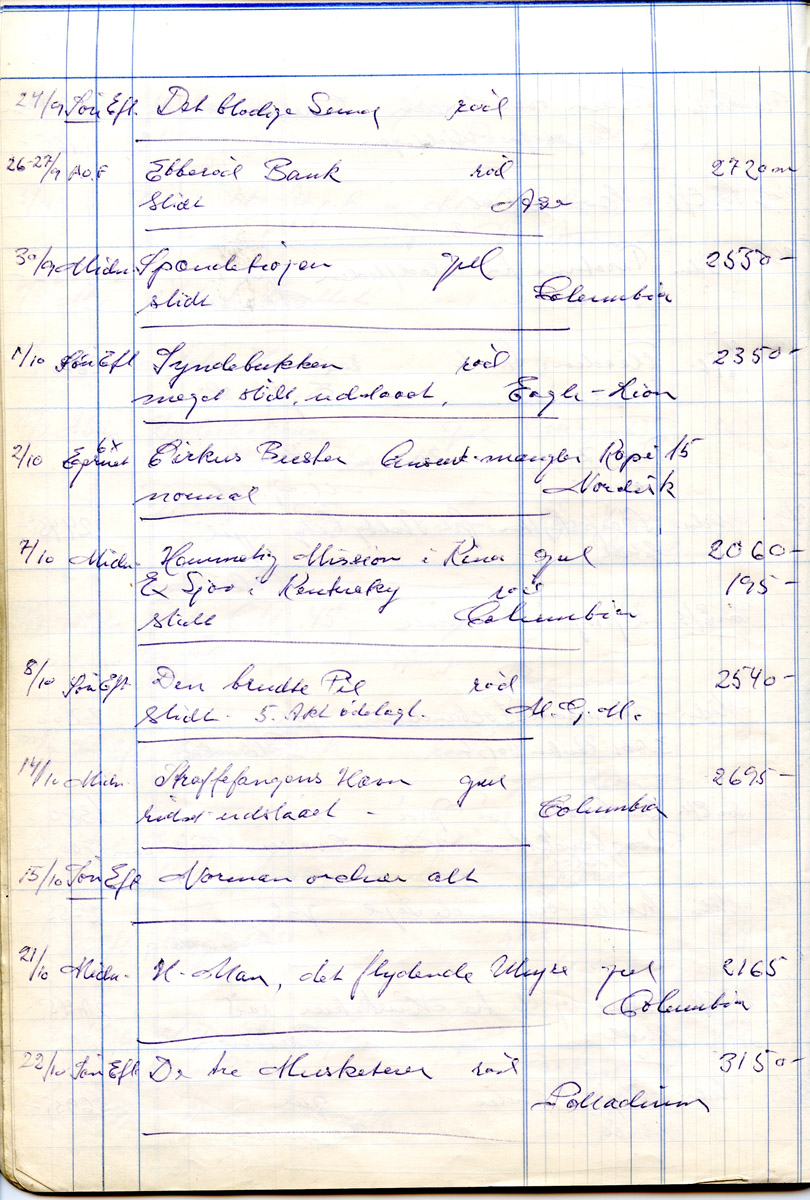 24/9 Søn Eft. Det blodige Sømd rød
26-27/9 A.O.F Ebberød Bank rød 2720 m
slidt Asa
30/9 Midn. Spøndetrøjen gul 2550 -
slidt Columbia
1/10 Søn Eft Syndebukken rød 2350 -
meget slidt, udslaaet, Eagle-Lion
2/10 Cirkus Buster mangler Kopi 15
normal Nordisk
7/10 Midn. Hemmelig Mission i Kina gul 2060 -
Et Sjov i Kentucky rød 195 -
slidt Columbia
8/10 Søn Eft Den brudte Pil rød 2540 -
Slidt. 5. Akt ødelagt. M.G.M.
14/10 Midn. Straffefangens Hævn gul 2695 -
ridset udslaaet - Columbia
15/10 Søn Eft Norman ordner alt
21/10 Midn. H-Man, det flydende Uhyre gul 2165
Columbia
22/10 Søn Eft De tre Musketerer rød 3150 -
Palladium